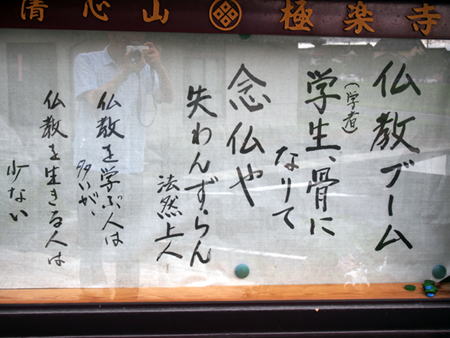 清心山 極楽寺
仏教ブーム
学生、骨に
(学者)
なりて
念仏や
失わんずらん
法然上人
仏教を学ぶ人は
多いが、
仏教を生きる人は
少ない